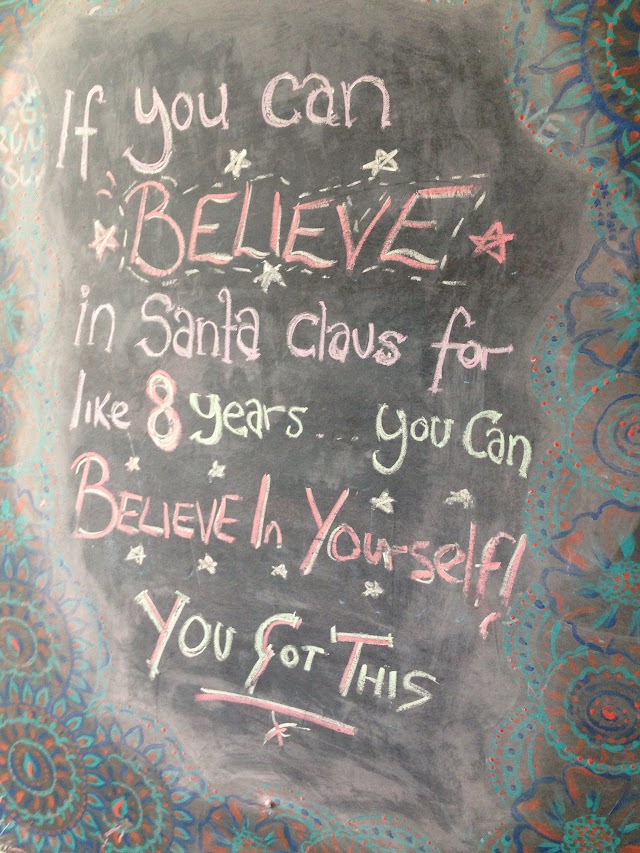 If you can
BELIEVE
in Santa Claus for
like 8 years.... you Can
BELIEVE In Your-self!
YOU GOT THIS